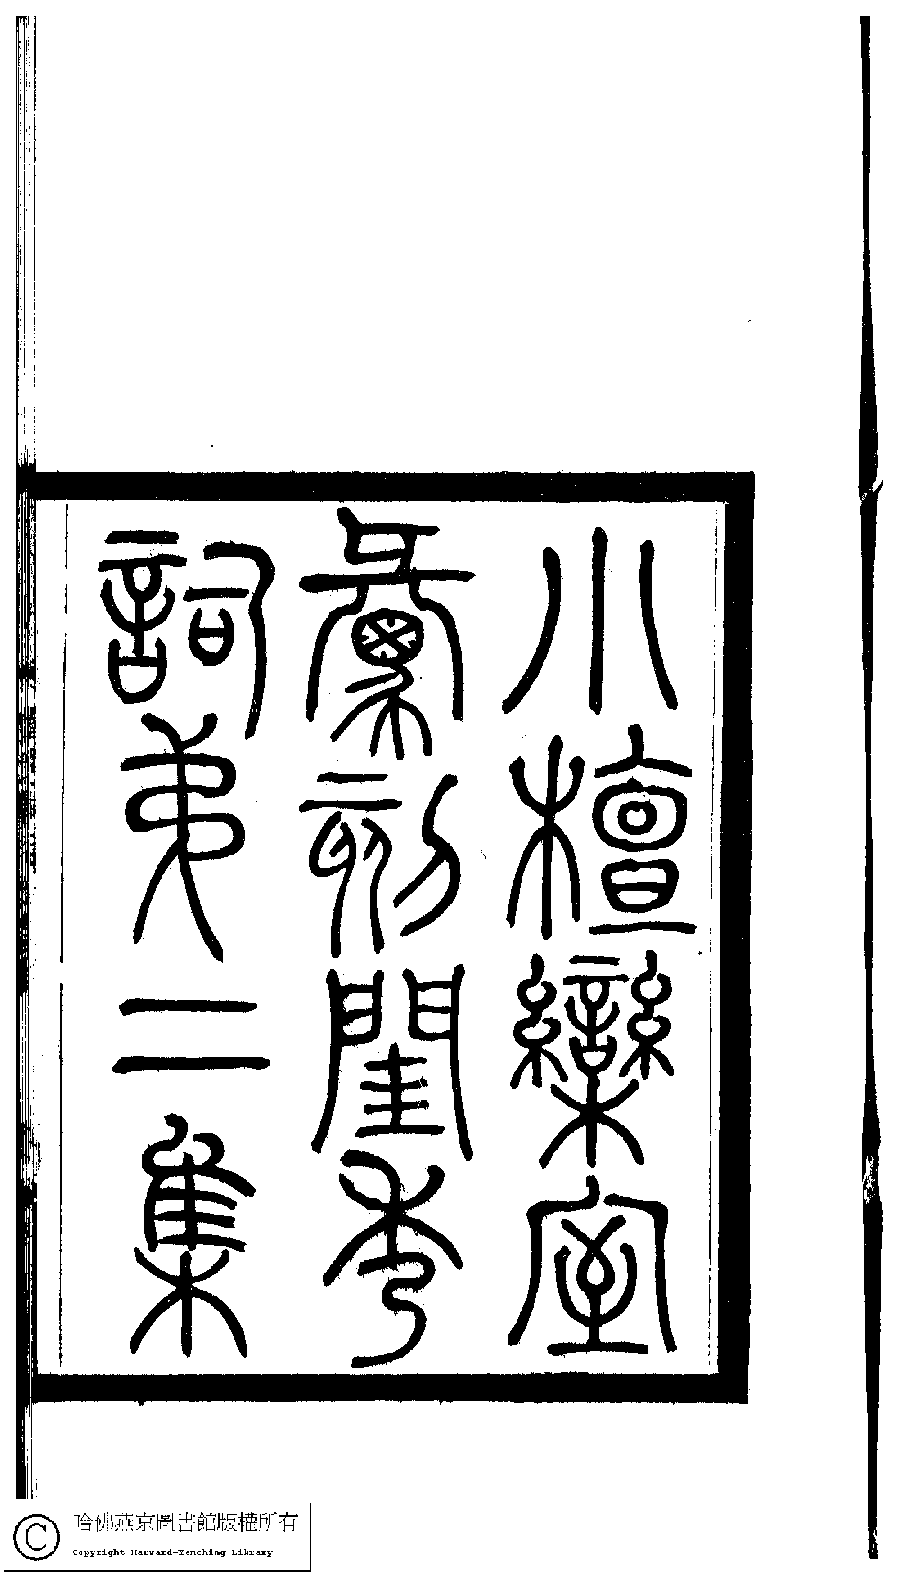 小檀欒室
彙刻閨秀
詞弟二集
哈佛燕京圖書館版權所有
Copyright Harvard-Yenching Library